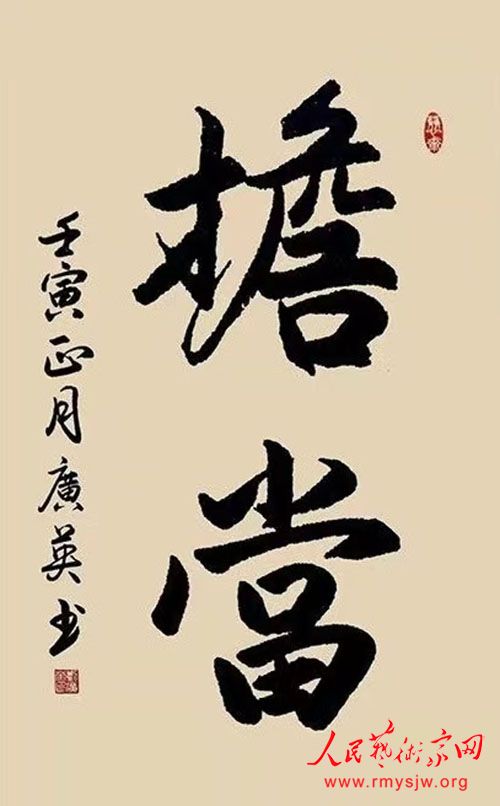 擔當
壬寅正月廣英书
人民藝術家网
www.rmysjw.org